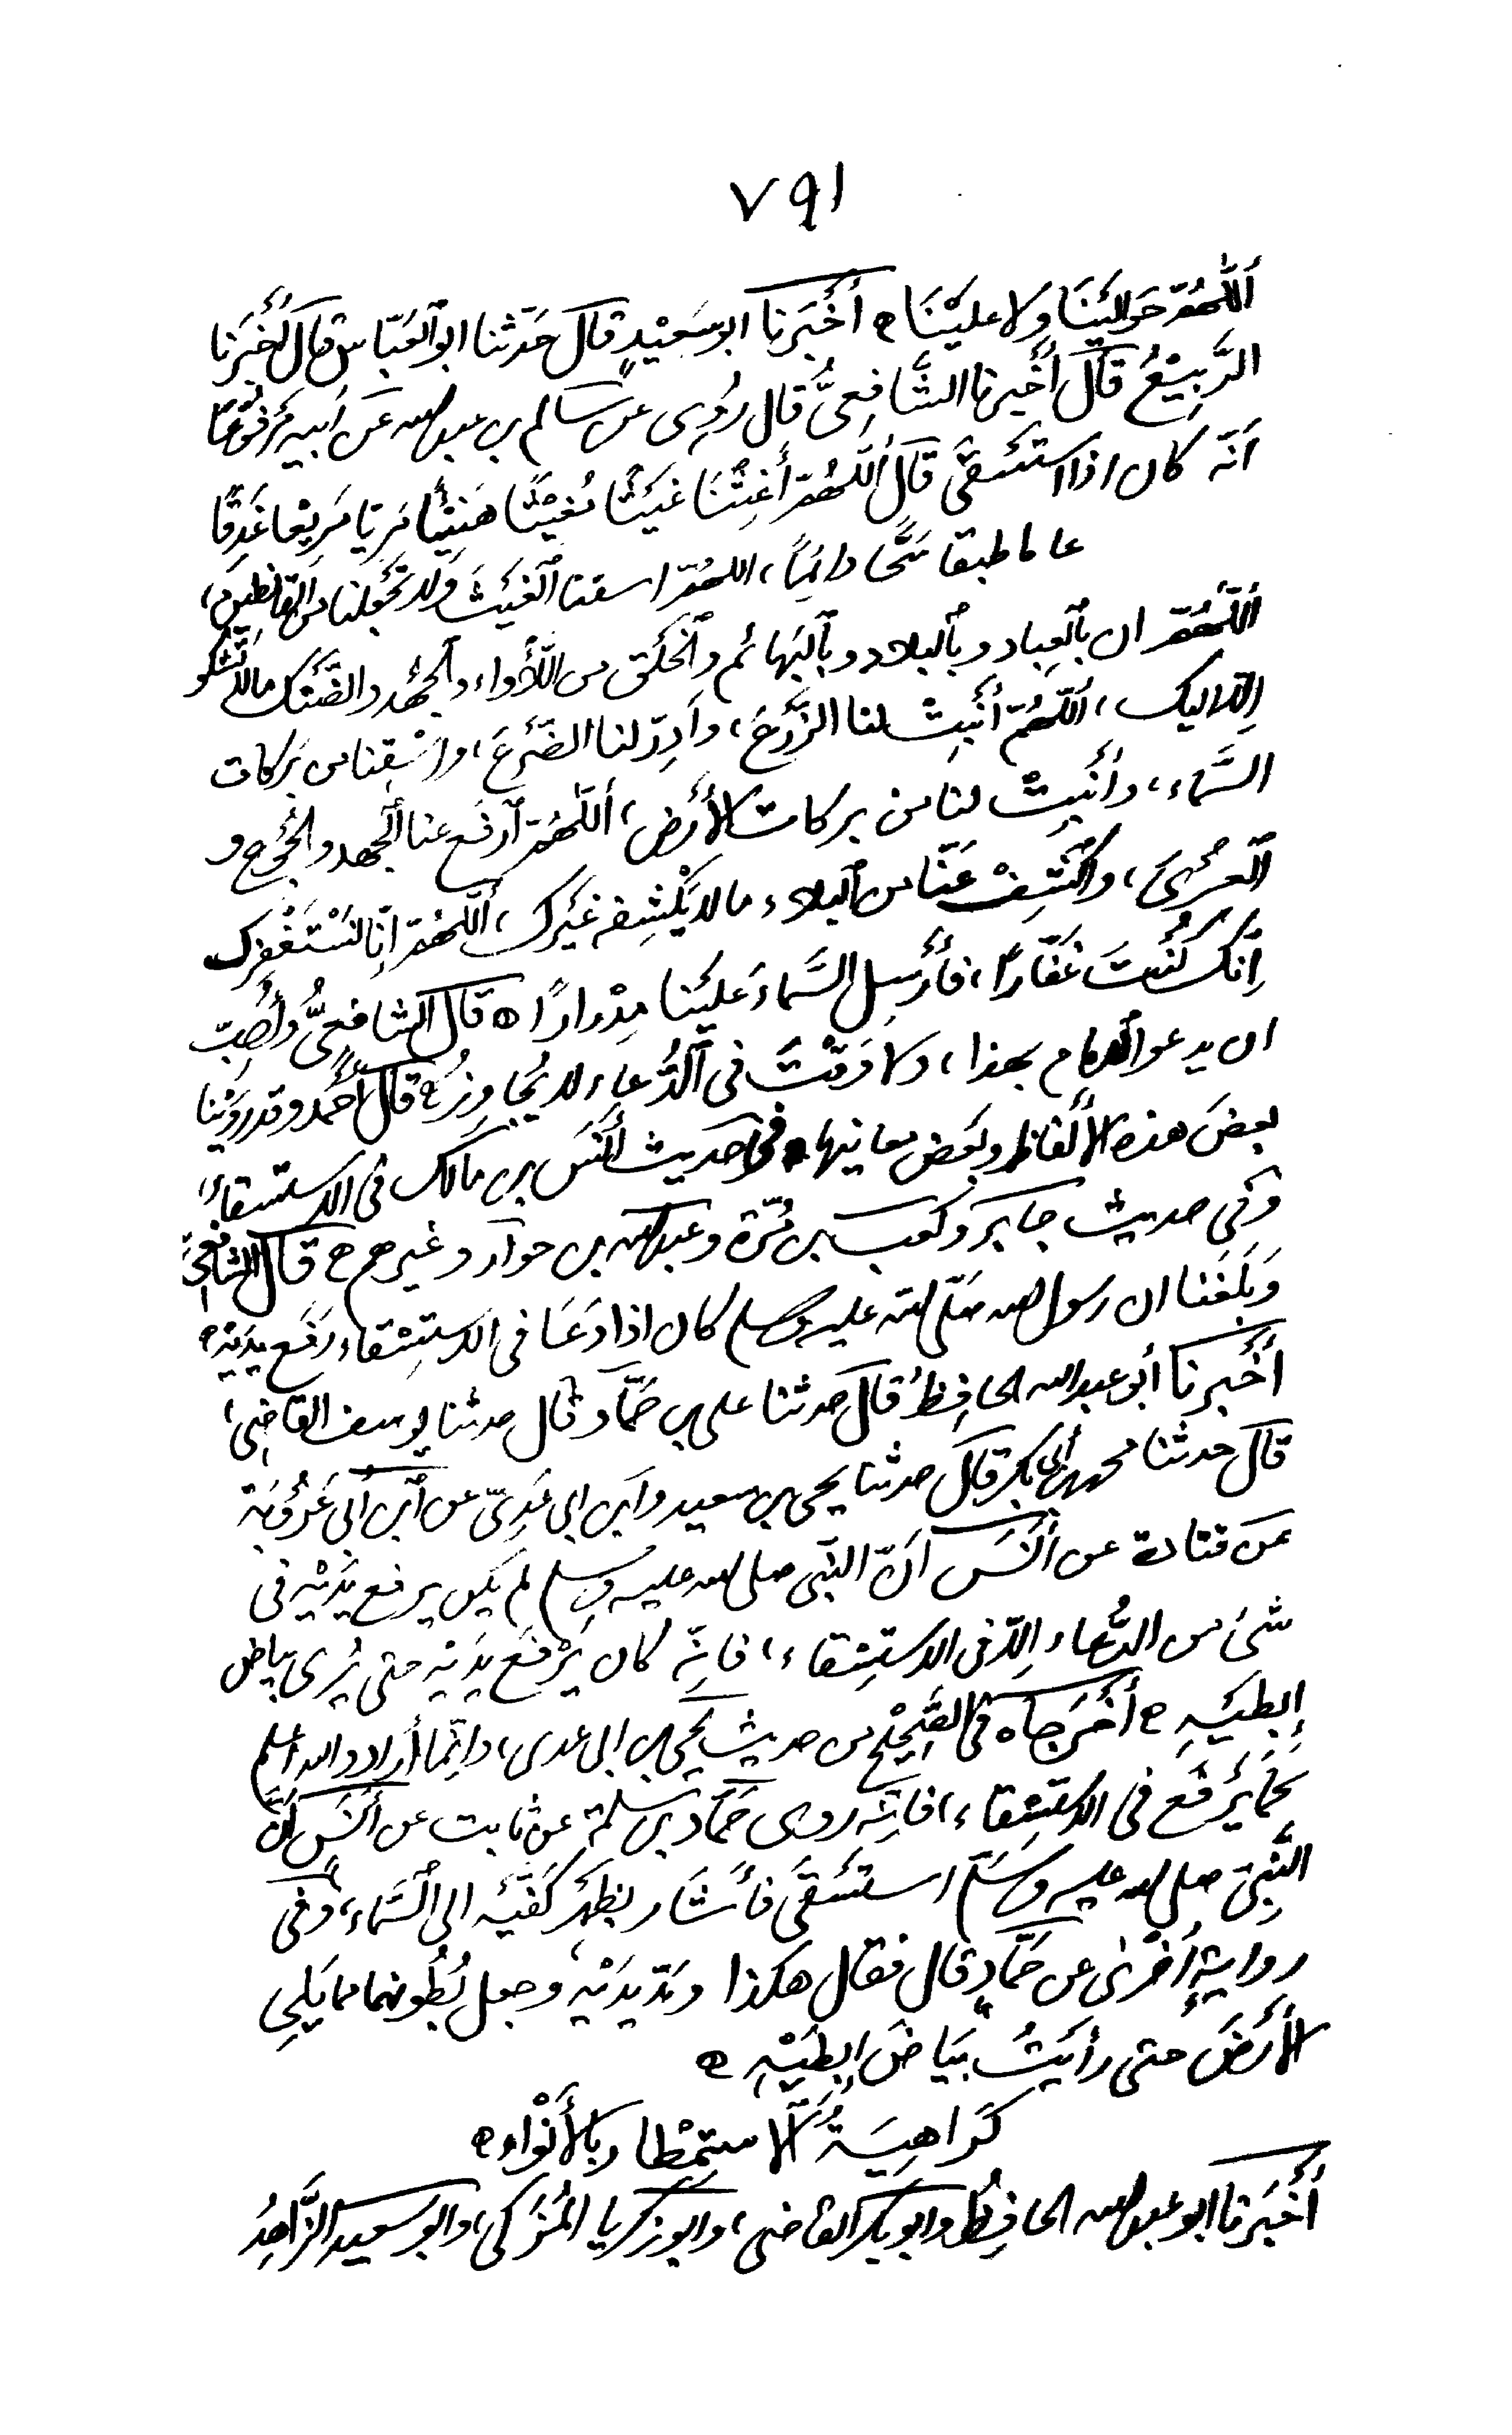 ٧٩١
أللّٰهُمّ حَوالَيْنَا وَلا علَيْنَا ۞ أَخْبَرنا ابو سَعِيْدٍ قال حَدّثنا ابو ٱلعَبّاس قال أَخْبَرَنا
الرَّبِيْعُ قَال أَخْبرنا الشَّافِعِىُّ قال رُوِى عن سَالم بن عبد الله عَن أبيه مَرفُوْعًا
أَنّه كان اذا استَسْقَى قَال أَللّٰهُمّ أَغِثْنَا غَيْثًا مُغِيْثًا هَنِيْئًا مَرِيا مَرِيْعا غَدِقًا
عاما طبقا سَحًّا دائِمًا، اللهُمّ اسقنا ٱلغَيْثَ وَلا تَجْعَلْنا من القانِطِيْنَ،
أَللّٰهُمّ ان بٱلعِباد وبٱلبلاد وبٱلبَهائم وٱلخَلْق من اللّأْواء وٱلجَهْد والضَّنْك مالا نَشْكُو
إلا اليك، أللّٰهُمّ أَنْبِتْ لنا الزَّرْعَ، وأَدِرّ لنا الضَّرْعَ، واسْقِنا من بَركات
السَّماء، وأَنْبِتْ لنا من بركات الأَرْض، أللّٰهُمّ ٱرفَع عنا ٱلجَهد والجُوْع و
ٱلعُرْىَ، واكْشِفْ عَنّا من ٱلبلاء ما لا يَكْشِفه غَيْرك، أللّٰهُمّ انّا نَسْتَغْفِرك
اِنّك كُنْتَ غَفّارًا، فأَرْسِل السَّماءَ علَيْنا مِدْرارًا ۞ قال الشافعىُّ وأُحِبّ
ان يدعو الإمام بهذا، ولا وَقْتَ فى ٱلدُّعاء لا يُجاوِزه ۞ قال أَحْمد وقد رَوَيْنا
بعضَ هذه الأَلفاظ وبَعْض معانيها فى حَديث أَنَسَ بن مالك فى الاستسقاء،
وَفى حديث جابر وكعب بن مُرّة وعبد الله بن جراد وغيرهم ۞ قال الشافعىّ
وَبَلَغَنا ان رسول الله صَلّى الله عليه وسلم كان اذا دَعَا فى الاستِسْقاء رَفَع يدَيْه ۞
أَخْبرنا أبو عبد الله الحافِظُ قال حدثنا على بن حَمّاد قال حدثنا يوسف القاضِى،
قال حدثنا محمد بن أبى بكر قال حدثنا يحيى بن سعيد وابن ابى عَدِىّ عن ٱبن أبى عَرُوْبَة
عَن قتادة عن أَنَس أنّ النبّى صلى الله عليه وسلم لم يكن يرفع يَدَيْه فى
شئ من الدُّعاء إلّا فى الاستِسْقاء، فإنّه كان يَرْفَع يَدَيْه حتى يُرى بياض
إبطَيْهِ ۞ أَخْرَجاه فى الصَّحِيْح من حديث يحيى بن ابى عدى، وانّما أراد والله أعلم
كَما يَرْفَع فى الاستِسْقاء، فانّه روى حَمّاد بن سلمة عن ثابت عن أَنَس أنّ
النَّبِىّ صلى الله عليه وسَلّم استَسْقَى فأَشَار بظهر كَفَّيْه الى السَّماء، وفى
روايةٍ أُخْرىٰ عن حَمّادٍ قال فقال هكذا ومَدّ يدَيْه، وجعل بُطُونَهما مما يَلِى
الأَرْضَ حتى رأَيْتُ بَيَاضَ إبطَيْهِ ۞
كَراهِيَةُ ٱلاستِمْطار بالأَنْواء ۞
أَخْبَرنا ابو عبد الله الحافِظُ وابو بكر القاضى، وابو زكريا المُزَكِّى، وابو سعيد الزَّاهِدُ